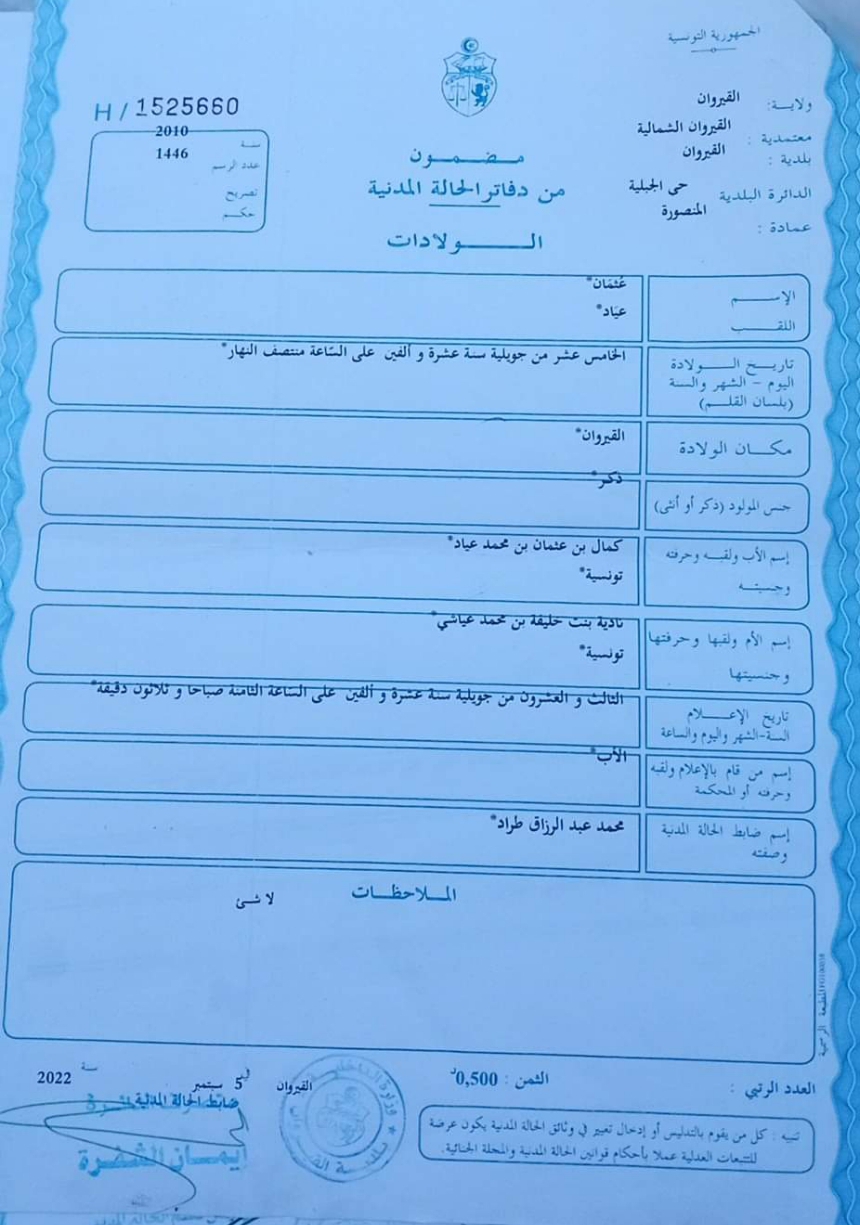 الجمهورية التونسية
ولايــة: القيروان
معتمدية : القيروان الشمالية
بلدية : القيروان
الدائرة البلدية حى الجبلية
عمادة : المنصورة
H / 1525660
سنة 2010
عدد الرسم 1446
تصريح
حكم
مضمون
من دفاتر الحالة المدنية
الولادات
الإسم عُثمَان*
اللقب عيّاد*
تاريخ الولادة الخامس عشر من جويلية سنة عشرة و ألفين على السّاعة منتصف النهار*
اليوم - الشهر والسنة
(بلسان القلم)
مكان الولادة القيروان*
جنس المولود (ذكر أو أنثى) ذكر*
إسم الأب ولقبه وحرفته كمال بن عثمان بن محمد عياد*
وجنسيته تونسية*
إسم الأم ولقبها وحرفتها نادية بنت خليفة بن محمد عياشي*
وجنسيتها تونسية*
تاريخ الإعلام الثالث و العشرون من جويلية سنة عشرة و ألفين على السّاعة الثامنة صباحا و ثلاثون دقيقة*
السنة-الشهر واليوم والساعة
إسم من قام بالإعلام ولقبه الأب*
وحرفته أو المحكمة
إسم ضابط الحالة المدنية محمد عبد الرزاق طراد*
وصفته
الملاحظات
لا شئ
المطبعة الرسمية
العدد الرتبي :
الثمن : 0,500د
القيروان في 5 سبتمبر سنة 2022
ضابط الحالة المدنية
إيمان الشقرة
تنبيه : كل من يقوم بالتدليس أو إدخال تغيير في وثائق الحالة المدنية يكون عرضة
للتتبعات العدلية عملا بأحكام قوانين الحالة المدنية والمجلة الجنائية.